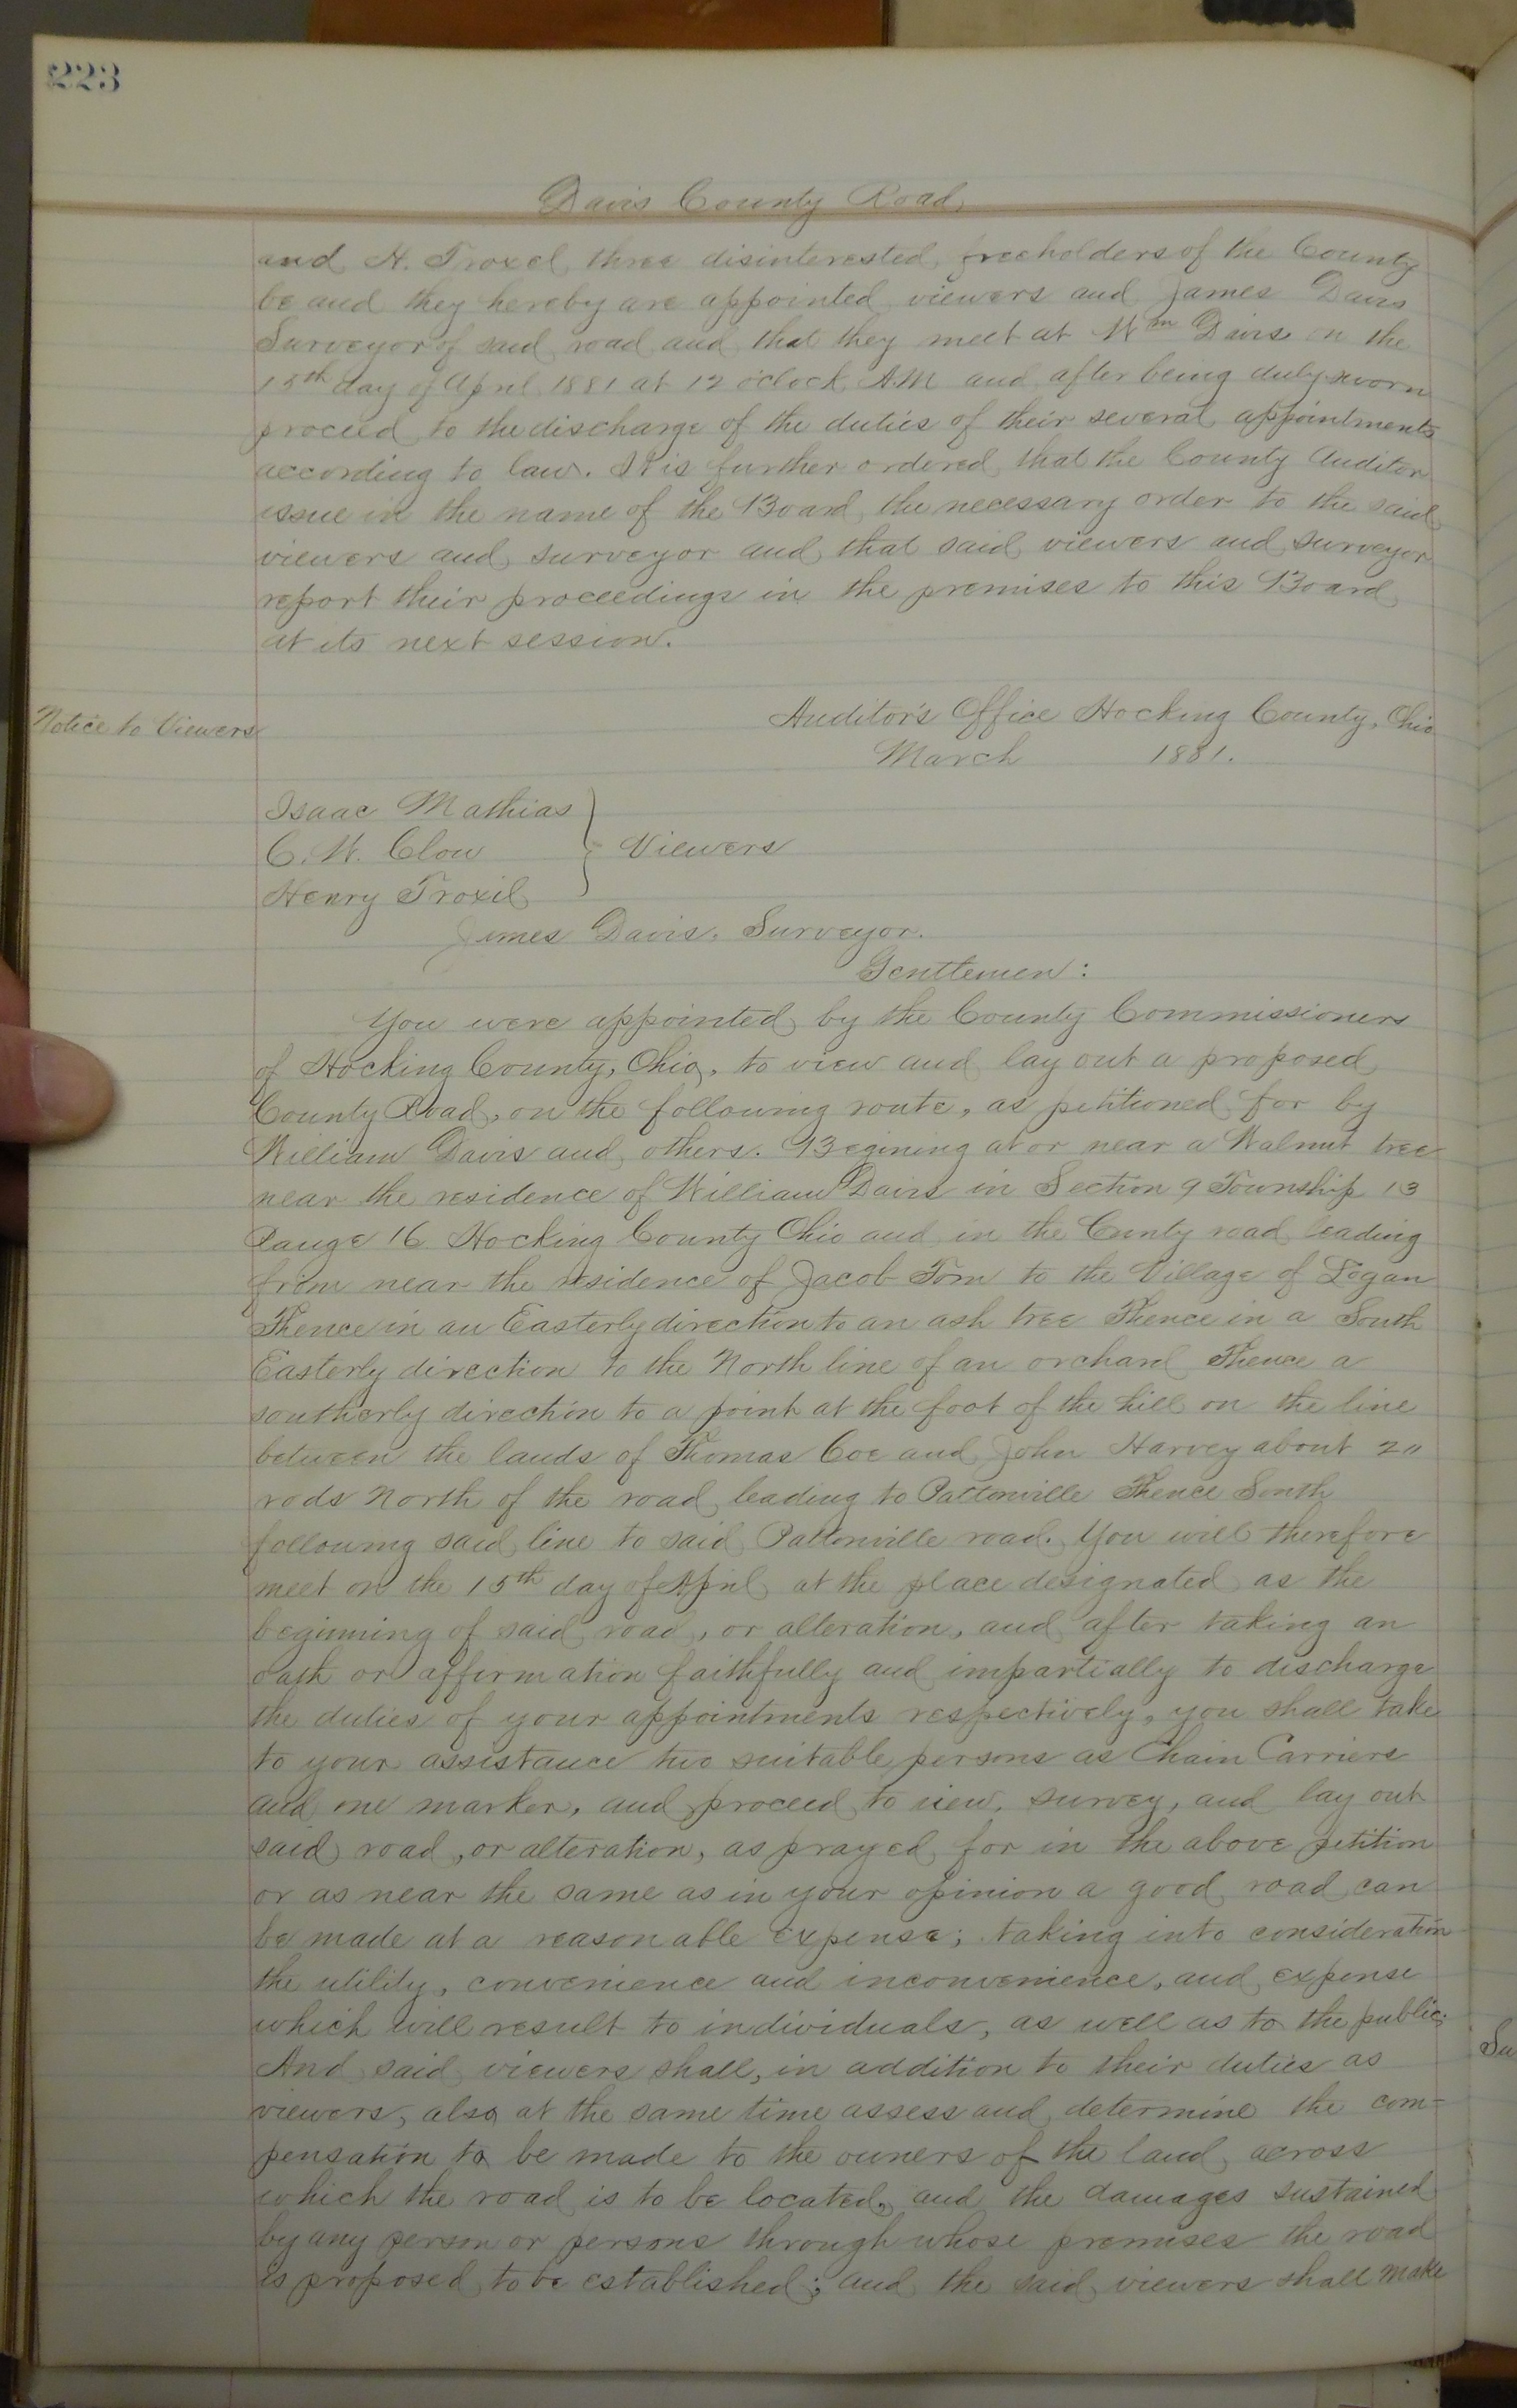 223
Davis County Road,
and H. Troxel three disinterested freeholders of the County
be and they hereby are appointed viewers and James Davis
Surveyor of said road and that they meet at Wm Davis on the
15th day of April 1881 at 12 o'clock A.M and after being duly sworn
proceed to the discharge of the duties of their several appointments
according to law. It is further ordered that the County Auditor
issue in the name of the Board the necessary order to the said
viewers and surveyor and that said viewers and surveyor
report their proceedings in the premises to this Board
at its next session.
Notice to Viewers
Auditor's Office Hocking County, Ohio
March 1881.
Isaac Mathias
C. W. Clow
Viewers
Henry Troxil
James Davis. Surveyor.
Gentlemen:
You were appointed by the County Commissioners
of Hocking County, Ohio, to view and lay out a proposed
County Road, on the following route, as petitioned for by
William Davis and others. Begining at or near a Walnut tree
near the residence of William Davis in Section 9 Township 13
Range 16 Hocking County Ohio and in the Cunty road leading
from near the residence of Jacob Tom to the Village of Logan
Thence in an Easterly direction to an ash tree Thence in a South
Easterly direction to the North line of an orchard Thence a
southerly direction to a point at the foot of the hill on the line
between the lands of Thomas Coe and John Harvey about 20
rods North of the road leading to Pattonville Thence South
following said line to said Pattonville road. You will therefore
meet on the 15th day of April at the place designated as the
beginning of said road, or alteration, and after taking an
oath or affirmation faithfully and impartially to discharge
the duties of your appointments respectively, you shall take
to your assistance two suitable persons as Chain Carriers
and one marker, and proceed to view, survey, and lay out
said road, or alteration, as prayed for in the above petition
or as near the same as in your opinion a good road can
be made at a reasonable expense; taking into consideration
the utility, convenience and inconvenience, and expense
which will result to individuals, as well as to the public;
And said viewers shall, in addition to their duties as
viewers, also at the same time assess and determine the com-
pensation to be made to the owners of the land across
which the road is to be located, and the damages sustained
by any person or persons through whose premises the road
is proposed to be established; and the said viewers shall make
Su